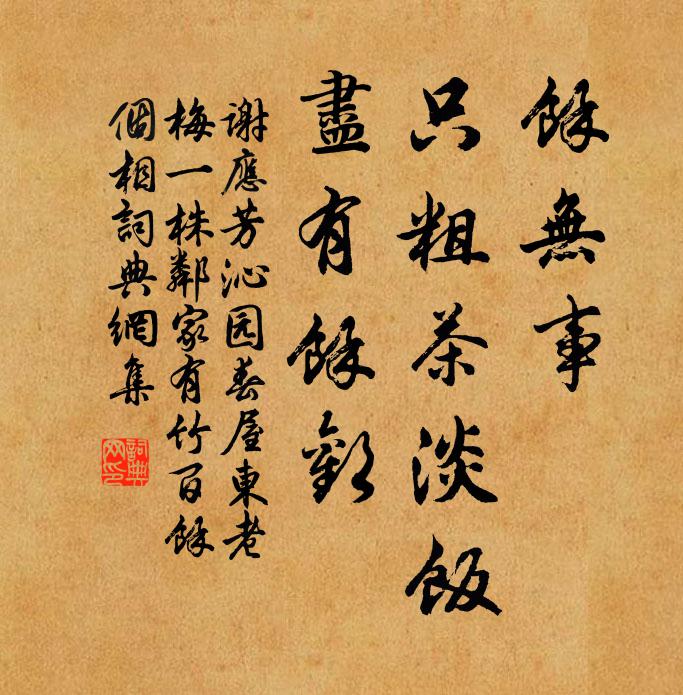 餘無事
只粗茶淡飯
盡有餘歡
謝應芳沁园春屋東老
梅一株鄰家有竹百餘
個相詞典網集
詞典网印